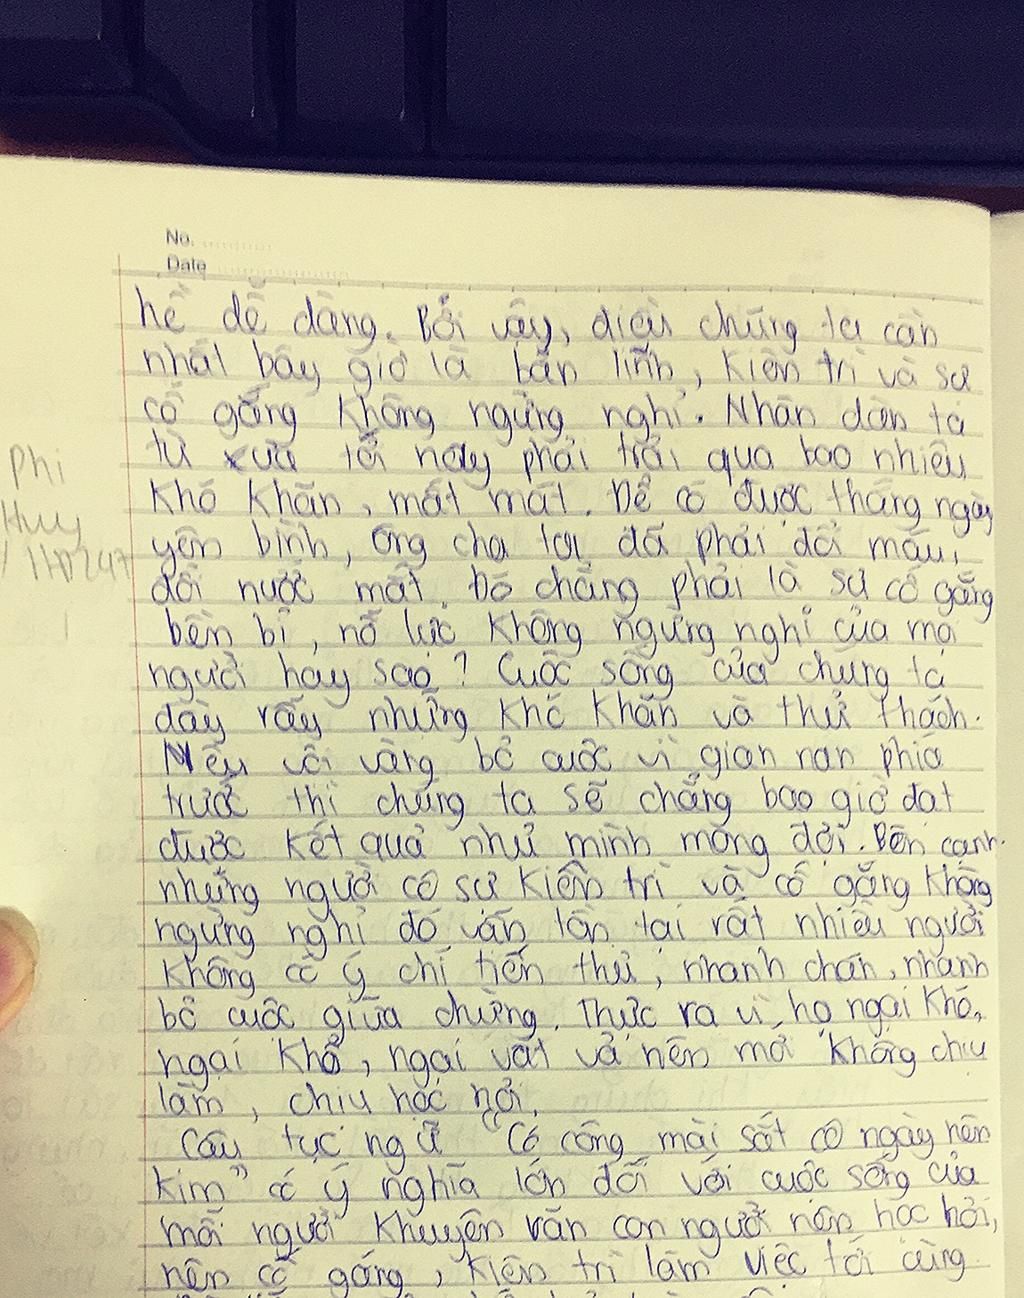 No.
Date
hề dễ dàng. Bởi vậy, điều chúng ta cần
nhất bây giờ là bản lĩnh, kiên trì và sự
cố gắng không ngừng nghỉ. Nhân dân ta
từ xưa tới nay phải trải qua bao nhiêu
khó khăn, mất mát. Để có được tháng ngày
yên bình, ông cha ta đã phải đổi máu,
đổi nước mắt. Đó chẳng phải là sự cố gắng
bền bỉ, nỗ lực không ngừng nghỉ của mọi
người hay sao? Cuộc sống của chúng ta
đầy rẫy những khó khăn và thử thách.
Nếu vội vàng bỏ cuộc vì gian nan phía
trước thì chúng ta sẽ chẳng bao giờ đạt
được kết quả như mình mong đợi. Bên cạnh
những người có sự kiên trì và cố gắng không
ngừng nghỉ đó, vẫn tồn tại rất nhiều người
không có ý chí tiến thủ, nhanh chán, nhanh
bỏ cuộc giữa chừng. Thực ra vì họ ngại khó,
ngại khổ, ngại vất vả nên mới không chịu
làm, chịu học hỏi.
Câu tục ngữ "Có công mài sắt có ngày nên
kim" có ý nghĩa lớn đối với cuộc sống của
mỗi người khuyên răn con người nên học hỏi,
nên cố gắng, kiên trì làm việc tới cùng.
Phi
Huy